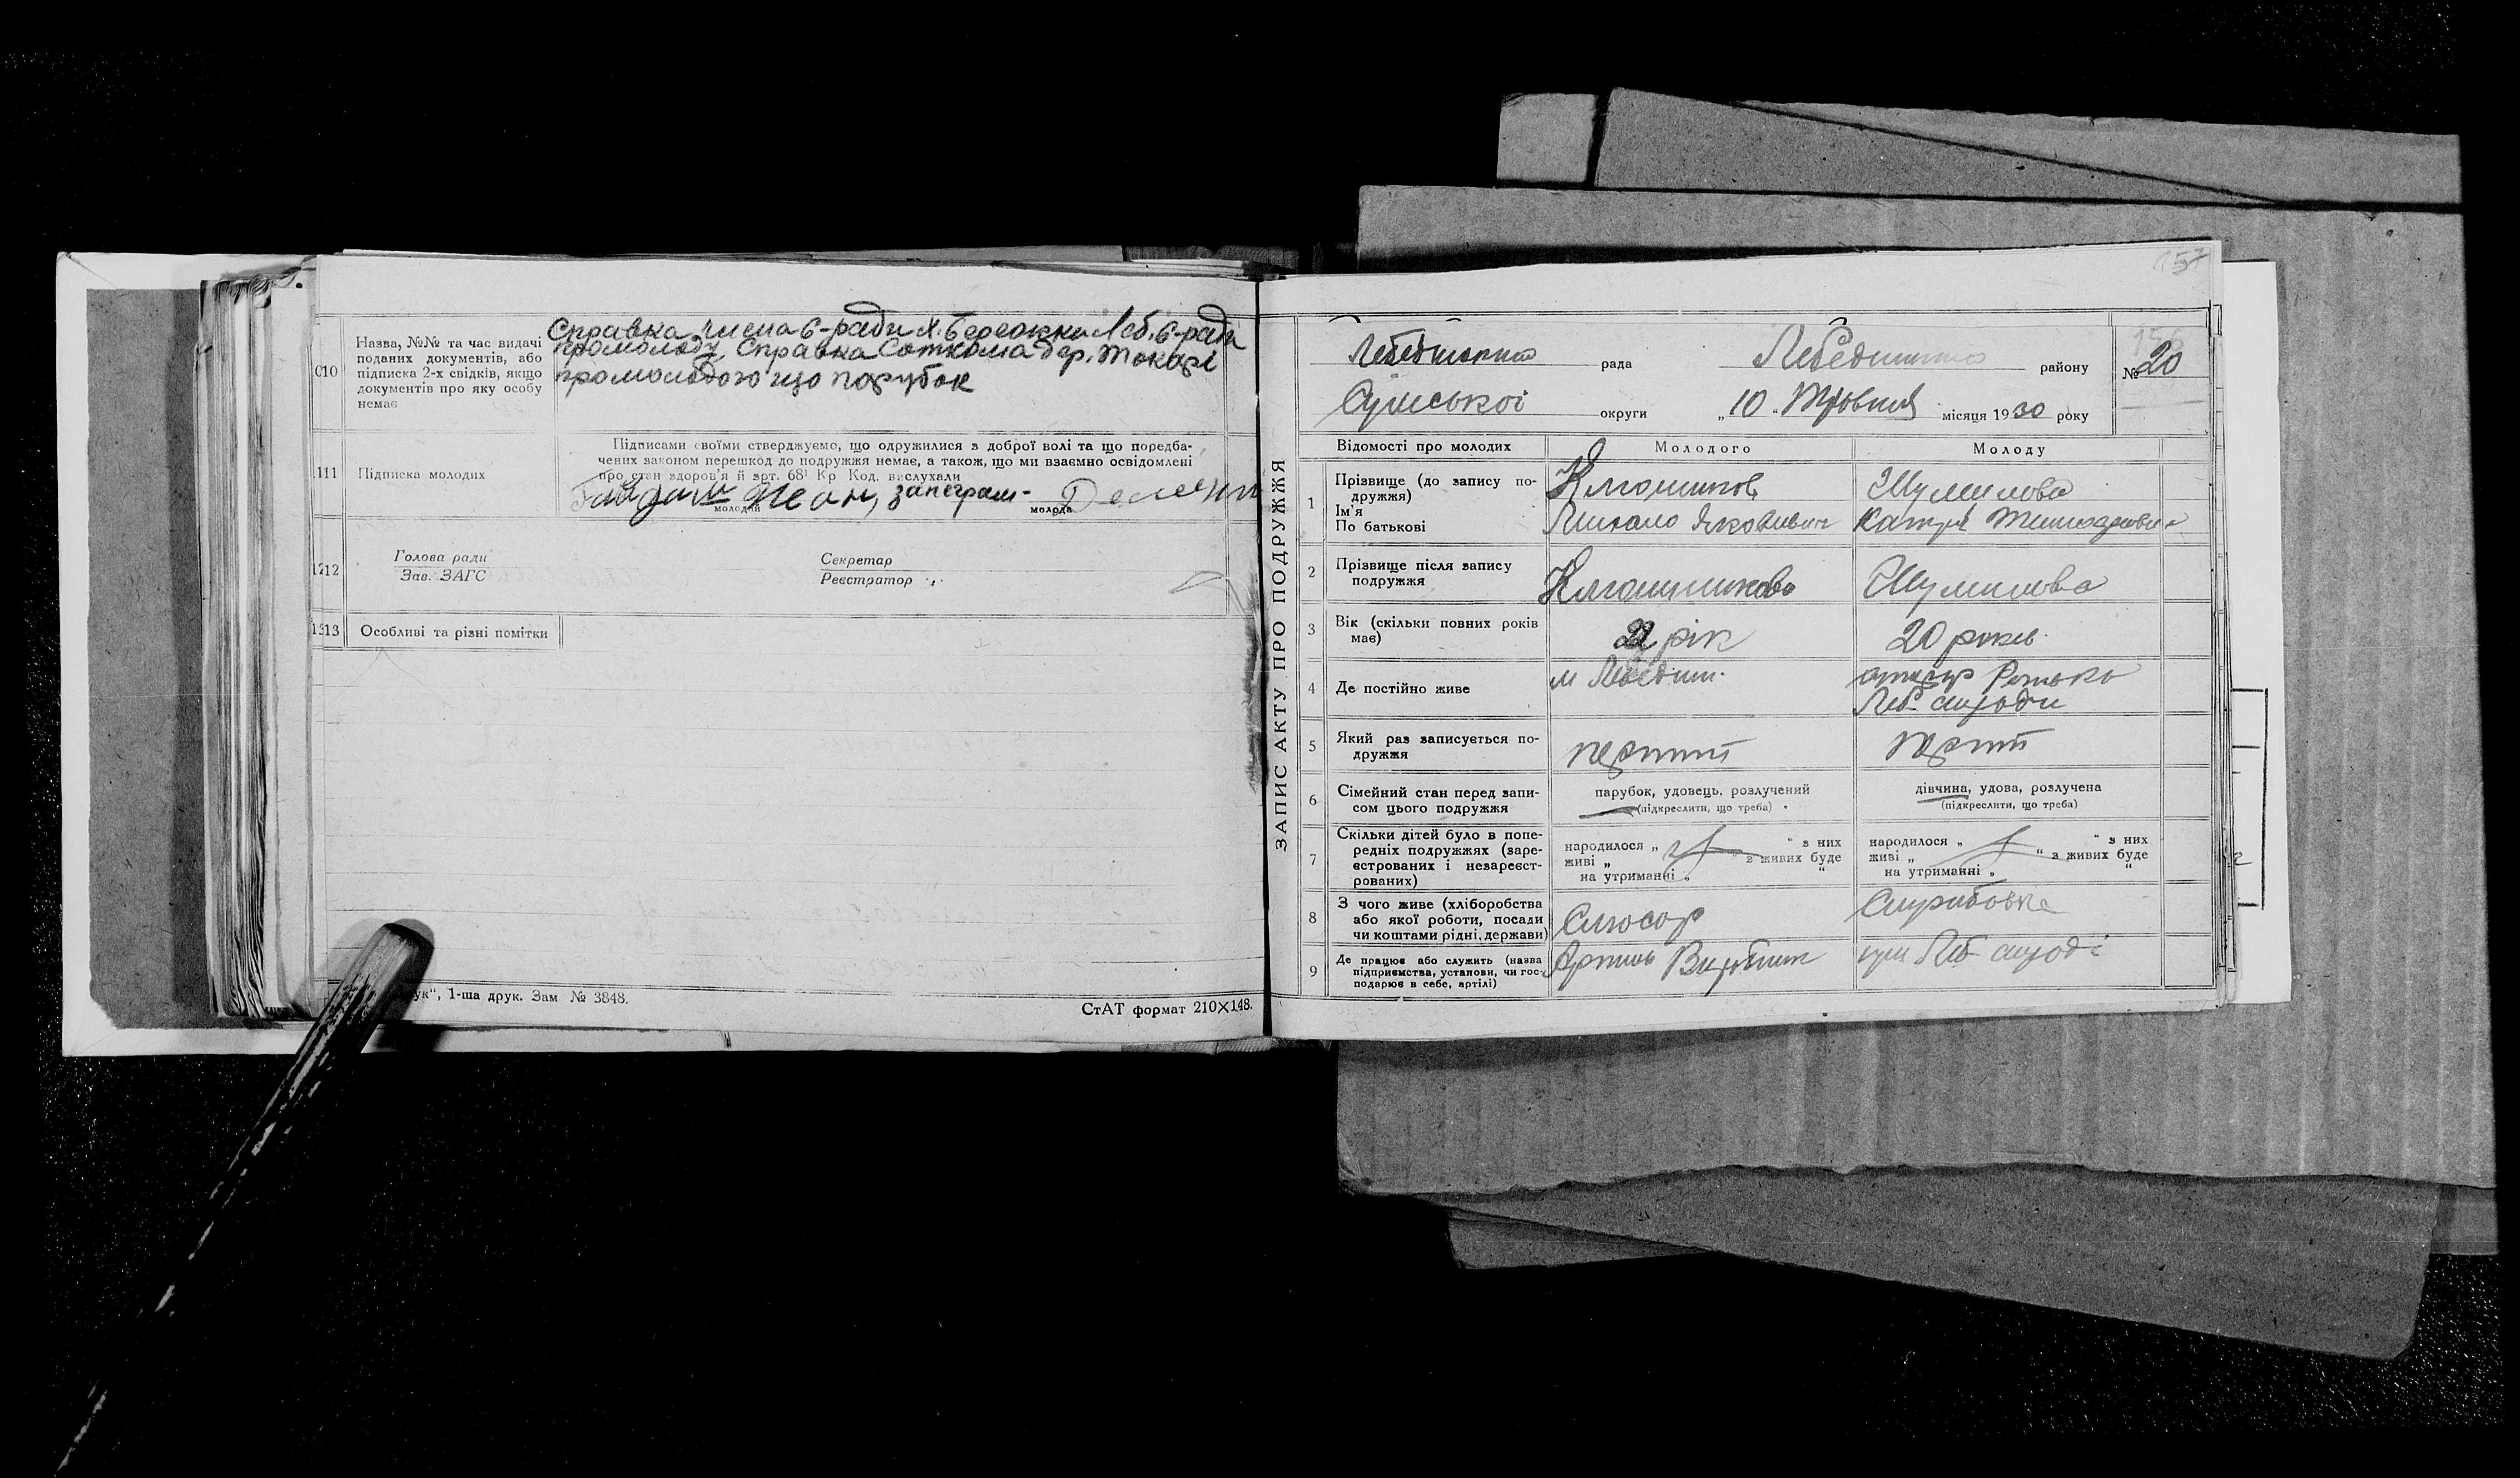 010
Назва, №№ та час видачі
поданих документів, або
підписка 2-х свідків, якщо
документів про яку особу
немає
Справка
промолоду, Справка Соткома дер. Токарі
промолодого що парубок
111
Підписка молодих
Підписами своїми стверджуємо, що одружилися з доброї волі та що поредба-
чених законом перешкод до подружжя немає, а також, що ми взаємно освідомлені
про стан здоров'я й арт. 68¹ Кр Код. вислухали
молодий
молода
1212
Голова ради
Зав. ЗАГС
Секретар
Реєстратор
1313
Особливі та різні помітки
ук“, 1-ша друк. Зам № 3848.
СтАТ формат 210×148.
ЗАПИС АКТУ ПРО ПОДРУЖЖЯ
157
156
Лебединська рада
Лебединського району
№ 20
Сумської округи
„ 10 „ Травня місяця 1930 року
Відомості про молодих
Молодого
Молоду
1
Прізвище (до запису по-
дружжя)
Ім'я
По батькові
Клюшников
Михайло Якович
Шумилова
Катря
2
Прізвище після запису
подружжя
Клюшникова
Шумилова
3
Вік (скільки повних років
має)
22 рік
20 років
4
Де постійно живе
м Лебедин.
Леб. сільради
5
Який раз записується по-
дружжя
перший
перший
6
Сімейний стан перед запи-
сом цього подружжя
парубок, удовець, розлучений
(підкреслити, що треба)
дівчина, удова, розлучена
(підкреслити, що треба)
7
Скільки дітей було в попе-
редніх подружжях (заре-
єстрованих і незареєст-
рованих)
народилося „ “ з них
живі „ “ з живих буде
на утриманні „ “
народилося „ “ з них
живі „ “ з живих буде
на утриманні „ “
8
З чого живе (хліборобства
або якої роботи, посади
чи коштами рідні, держави)
Слюсар
9
Де працює або служить (назва
підприємства, установи, чи гос-
подарює в себе, артілі)
Артиль
при Леб.